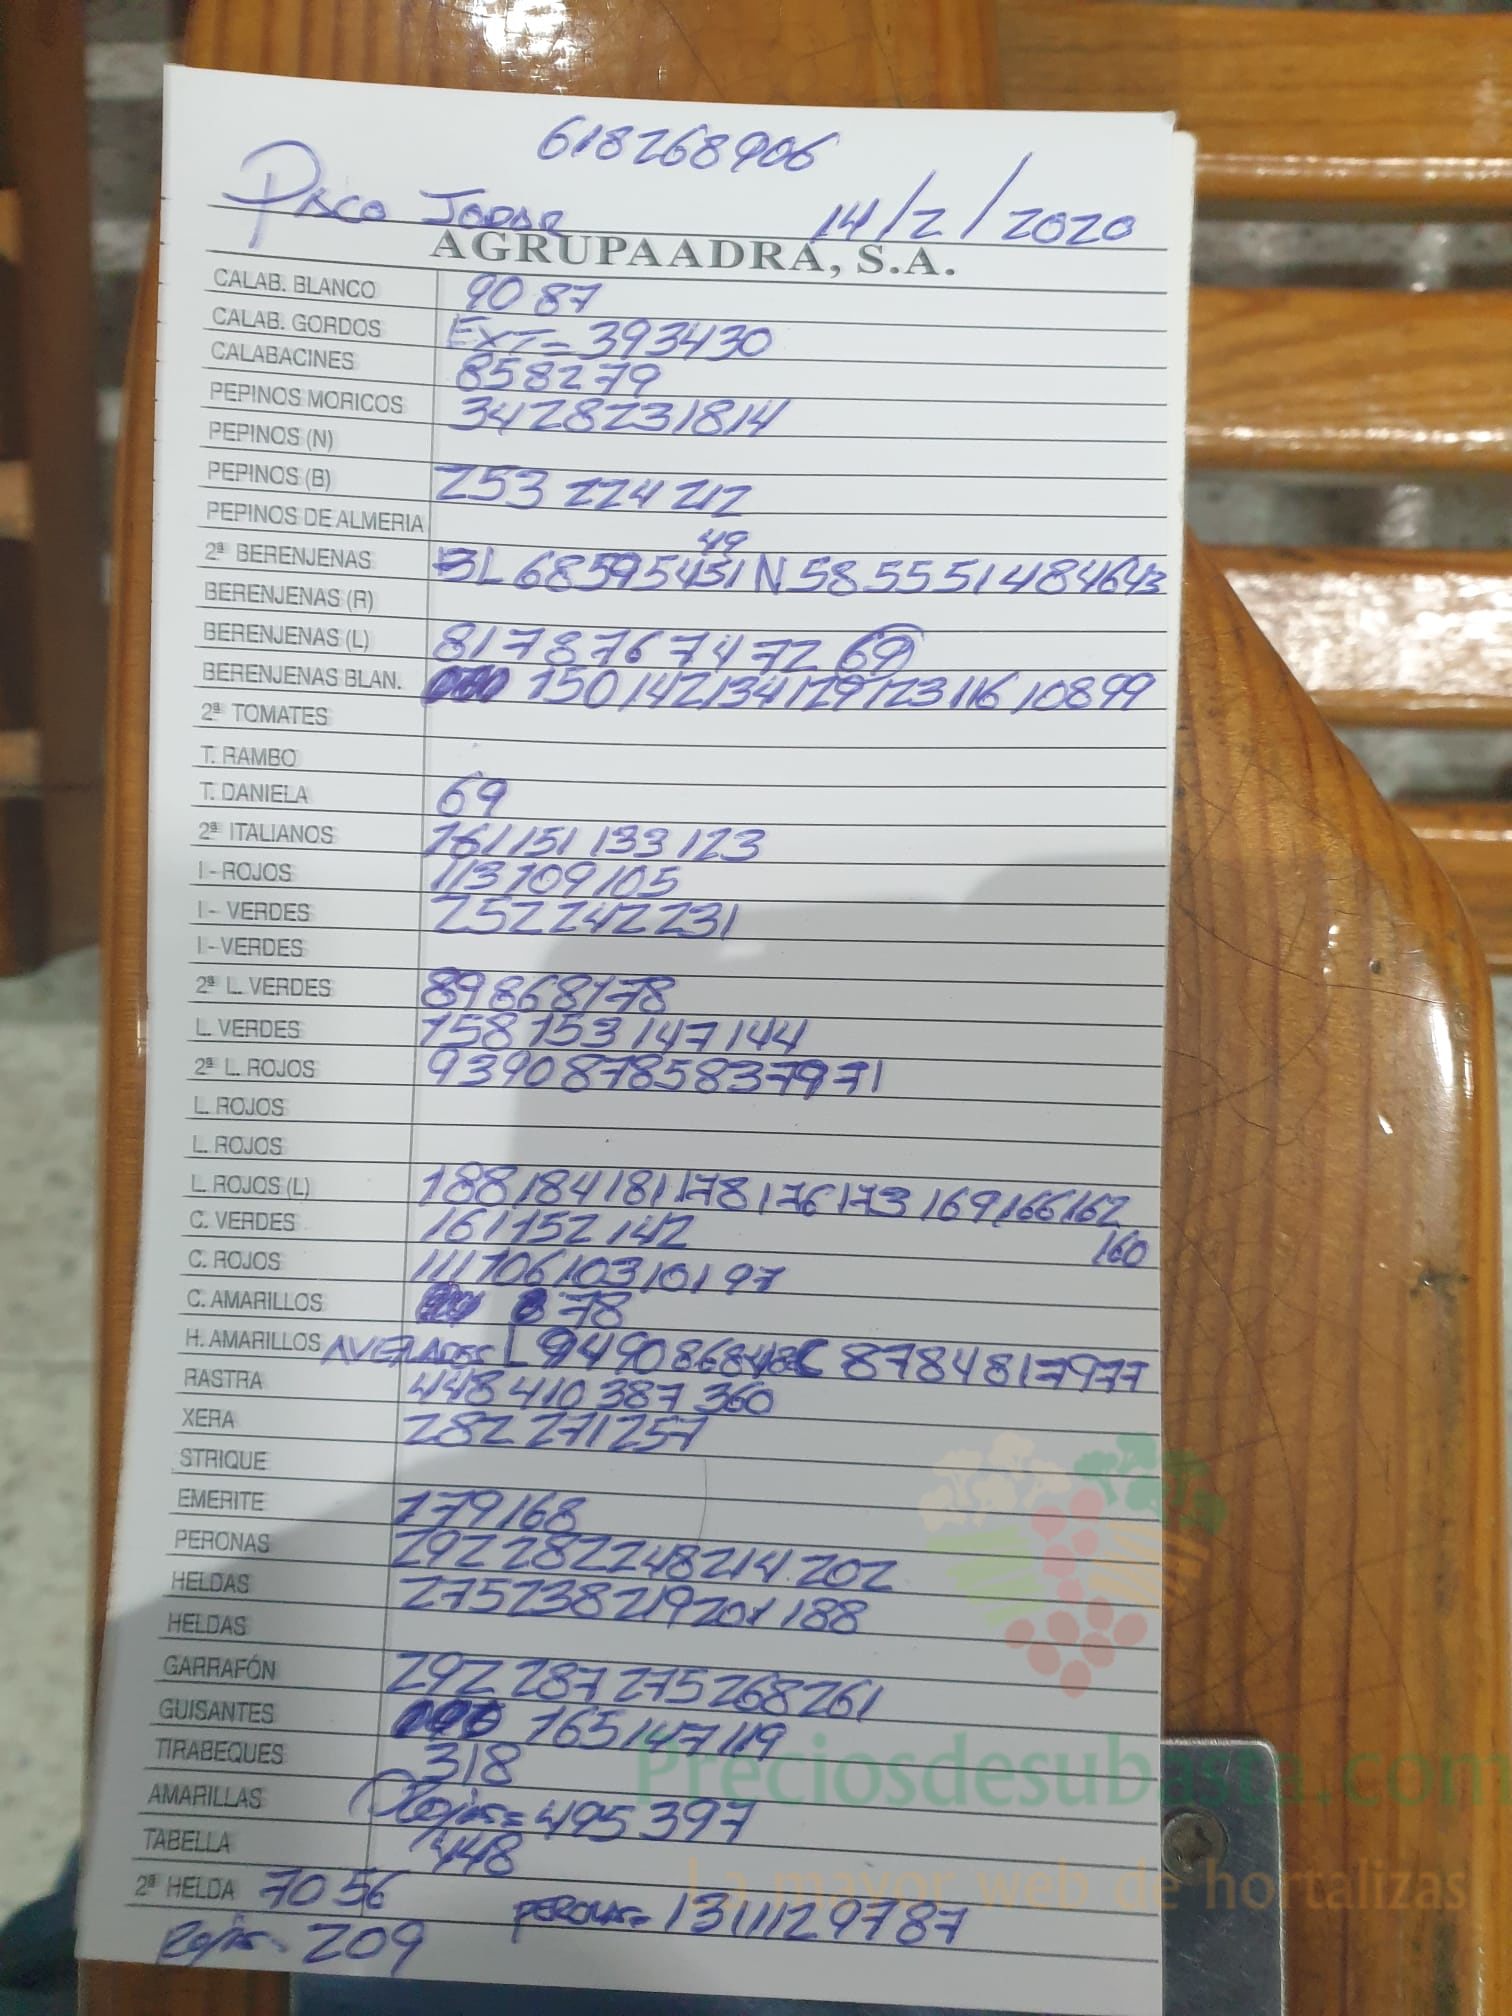 618268906
Paco Jodar 14/2/2020
AGRUPAADRA, S.A.
CALAB. BLANCO 90 87
CALAB. GORDOS EXT= 393430
CALABACINES 858279
PEPINOS MORICOS 3428231814
PEPINOS (N)
PEPINOS (B) 253 224 212
PEPINOS DE ALMERIA
49
2ª BERENJENAS BL 6859545 1 N 585551484643
BERENJENAS (R)
BERENJENAS (L) 8178767472 69
BERENJENAS BLAN. 150 142 134 129 123 116 108 99
2ª TOMATES
T. RAMBO
T. DANIELA 69
2ª ITALIANOS 161 151 133 123
I - ROJOS 113 109 105
I - VERDES 252 242 231
I - VERDES
2ª L. VERDES 89868178
L. VERDES 158 153 147 144
2ª L. ROJOS 93908785837971
L. ROJOS
L. ROJOS
L. ROJOS (L) 188 184 181 178 176 173 169 166 162
160
C. VERDES 161 152 142
C. ROJOS 111 106 103 101 97
C. AMARILLOS 78
H. AMARILLOS L 949086 C 8784817977
RASTRA 448 410 387 360
XERA 282 271 257
STRIQUE
EMERITE 179 168
PERONAS 292 282 248 214 202
HELDAS 275 238 219 201 188
HELDAS
GARRAFÓN 292 287 275 268 261
GUISANTES 165 147 119
TIRABEQUES 318
AMARILLAS Rojas= 495 397
TABELLA 448
2ª HELDA 70 56 PERONAS= 131 112 97 87
Rojas= 209
Preciosdesubasta.com
La mayor web de hortalizas